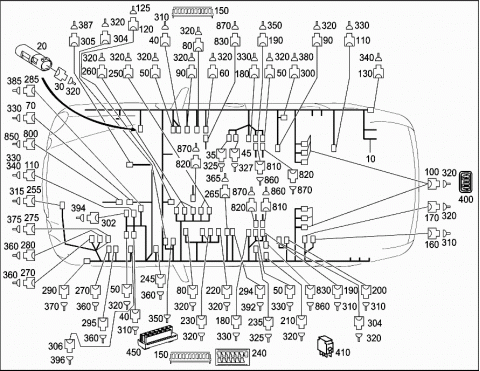 387 320 125 310 150 870 350 320 330
305 304 120 40 320 80 830 190 90 110
20
320 320 320 320 320 330 320 380 340
260 250 50 90 60 180 50 300 130
30 320
385 285
330 70
850 800
330
340 110
315 255
375 275
360 280
360 270
394
302
870 320
820
35 45 810
325 327 860 820
870
365
265 870 860
820 810
10
100 320
400
170 320
160 310
290 270 50 245 80 220 294 50 830 190 200
370 360 320 360 320 320 392 330 860 310 310
295 40 350 230 180 235 210 304
360 310 320 330 325 320 320
306
396
450 150 240 410